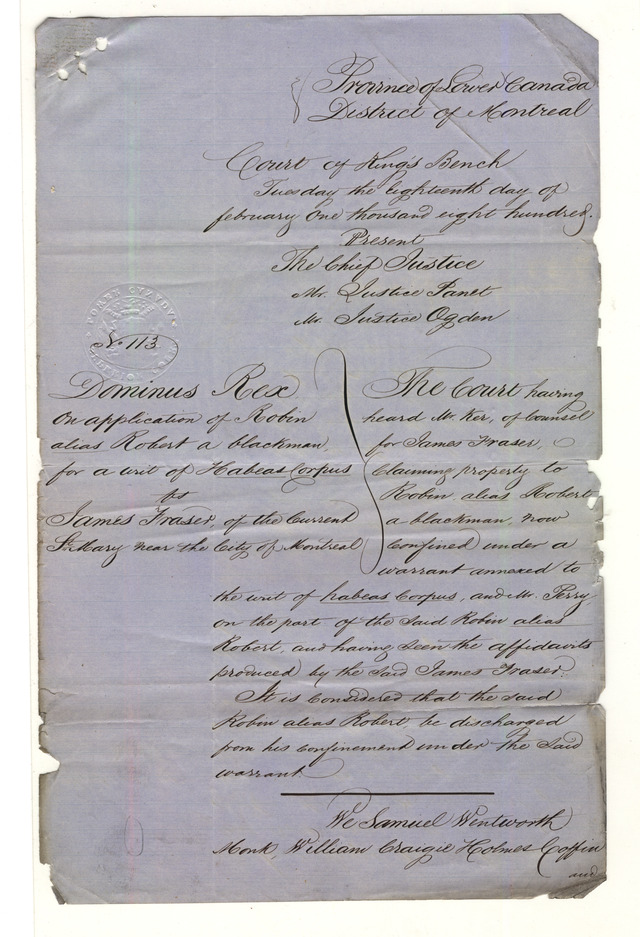 Province of Lower Canada
District of Montreal
Court of King's Bench
Tuesday the Eighteenth day of
february One thousand eight hundred.
Present
The Chief Justice
Mr. Justice Panet
Mr. Justice Ogden
No. 113
Dominus Rex
On application of Robin
alias Robert a blackman,
for a writ of Habeas Corpus
vs
James Fraser, of the Current
St. Mary near the City of Montreal
The Court having
heard Mr. Ker, of Counsel
for James Fraser,
Claiming property to
Robin alias Robert
a blackman, now
Confined under a
warrant annexed to
the writ of habeas Corpus, and Mr. Perry
on the part of the said Robin alias
Robert, and having seen the affidavits
produced by the said James Fraser:
It is Considered that the said
Robin alias Robert, be discharged
from his confinement under the said
warrant
We Samuel Wentworth
Monk, William Craigie Holmes Coffin
and